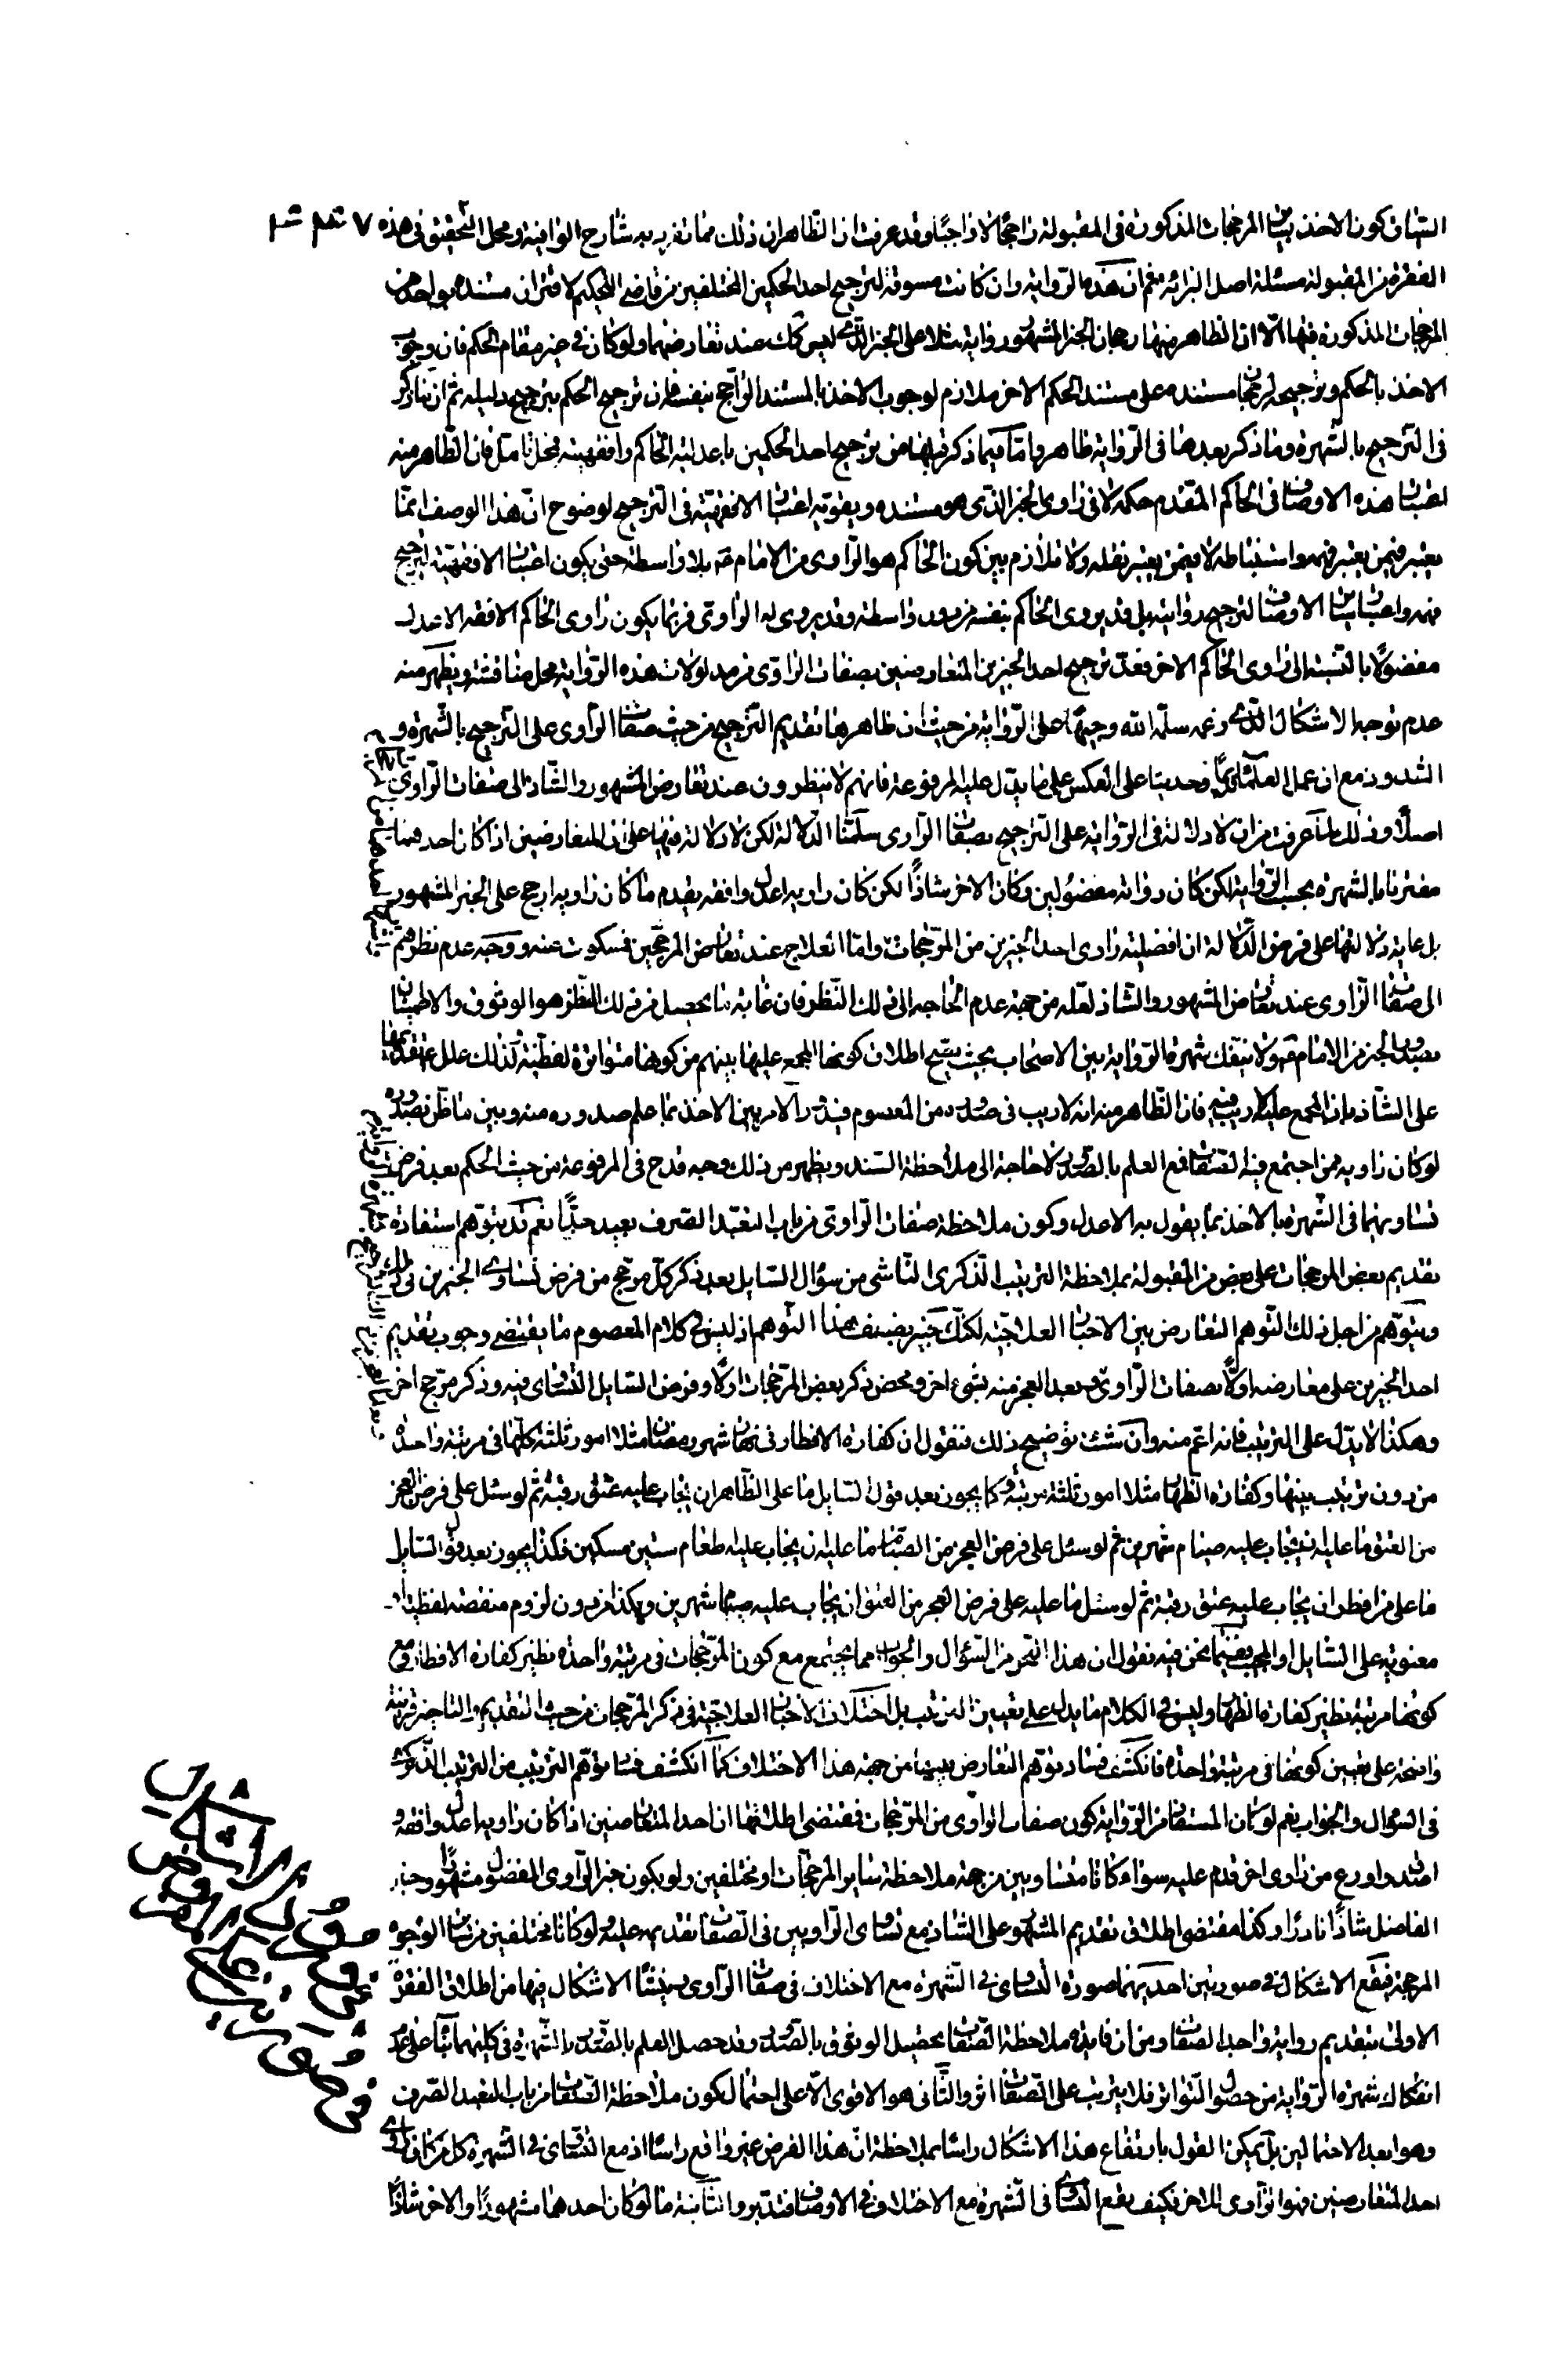 السياق كون الاخذ بسائر المرجحات المذكورة فى المقبولة راجحًا لا واجبًا وقد عرفت ان الظاهر ان ذلك مما تفرد به شارح الوافية ومحل التحقيق فى هذه
الفقرة من المقبولة مسئلة اصل البرائة ثم ان هذه الرواية وان كانت مسوقة لترجيح احد الحكمين المختلفين من قاضى التحكيم لاقتران مستنده بواحد من
المرجحات المذكورة فيها الّا ان الظاهر منها رجحان الخبر المشهور رواية مثلا على الخبر الذى ليس كك عند تعارضهما ولو كان فى غير مقام الحكم فان وجوب
الاخذ بالحكم وترجيحه لرجحان مستنده على مستند الحكم الاخر ملازم لوجوب الاخذ بالمستند الراجح بنفسه فان ترجيح الحكم بترجيح دليله ثم ان ما ذكر
فى الترجيح بالشهرة وما ذكر بعدها فى الرواية ظاهر واما فيما ذكر قبلها من ترجيح احد الحكمين باعدلية الحاكم وافقهيته محل تامل فان الظاهر منه
اعتبار هذه الاوصاف فى الحاكم المقدم حكمه لا فى راوى الخبر الذى هو مستنده ويقويه اعتبار الافقهية فى الترجيح لوضوح ان هذا الوصف انما
يعتبر فيمن يعتبر فهمه واستنباطه لا فيمن يعتبر نقله ولا تلازم بين كون الحاكم هو الراوى من الامام ع بلا واسطة حتى يكون اعتبار الافقهية لترجيح
فهمه واعتبار سائر الاوصاف لترجيح روايته بل قد يروى الحاكم بنفسه من دون واسطة وقد يروى له الراوى فربما يكون راوى الحاكم الافقه الاعدل
مفضولًا بالنسبة الى راوى الحاكم الاخر فعدّ ترجيح احد الخبرين المتعارضين بصفات الراوى من مدلولات هذه الرواية محل مناقشة ويظهر منه
عدم توجه الاشكال الذى زعمه سلّمه الله وجيهًا على الرواية من حيث ان ظاهرها تقديم الترجيح من حيث صفات الراوى على الترجيح بالشهرة و
الشذوذ مع ان عمل العلماء قديمًا وحديثا على العكس على ما يدل عليه المرفوعة فانهم لا ينظرون عند تعارض المشهور والشاذ الى صفات الراوى
اصلًا وذلك لما عرفت من ان لا دلالة فى الرواية على الترجيح بصفات الراوى سلّمنا الدلالة لكن لا دلالة فيها على ان المتعارضين اذا كان احدهما
مقترنا بالشهرة بحسب الرواية لكن كان رواته مفضولين وكان الاخر شاذًا لكن كان راويه اعدل وافقه يقدم ما كان راويه ارجح على الخبر المشهور
بل غاية دلالتها على فرض الدلالة ان افضلية راوى احد الخبرين من المرجحات واما العلاج عند تعارض المرجحين فسكوت عنه ووجه عدم نظرهم
الى صفات الراوى عند تعارض المشهور والشاذ لعله من جهة عدم الحاجة الى ذلك النظر فان غاية ما يحصل من ذلك النظر هو الوثوق والاطمينان
بصدور الخبر من الامام ع ولا ينفك شهرة الرواية بين الاصحاب بحيث يصح اطلاق كونها المجمع عليها بينهم من كونها متواترة لفظية لذلك علل ع تقديمها
على الشاذ بان المجمع عليه لا ريب فيه فان الظاهر منه انه لا ريب فى صدوره من المعصوم فيدور الامر بين الاخذ بما علم صدوره منه وبين ما ظن بصدوره
لو كان راويه ممن اجتمع فيه الصفات فمع العلم بالصدور لا حاجة الى ملاحظة السند ويظهر من ذلك وجه قدح فى المرفوعة من حيث الحكم بعد فرض
تساويهما فى الشهرة بالاخذ بما يقول به الاعدل وكون ملاحظة صفات الراوى من باب التعبّد الصرف بعيد جدًّا نعم قد يتوهم استفادة
تقديم بعض المرجحات على بعض من المقبولة بملاحظة الترتيب الذكرى الناشى من سؤال السايل بعد ذكر كلّ مرجح من فرض تساوى الخبرين فى ذلك
ويتوهم من اجل ذلك التوهم التعارض بين الاخبار العلاجيّة لكنك خبير بضعف هذا التوهم اذ ليس فى كلام المعصوم ما يقتضى وجوب تقديم
احد الخبرين على معارضه اولًا بصفات الراوى وبعد العجز منه بشىء اخر ومحض ذكر بعض المرجحات اولًا وفرض السايل التساوى فيه وذكر مرجح اخر
وهكذا لا يدلّ على الترتيب فانه اعم منه وان شئت توضيح ذلك فنقول ان كفارة الافطار فى نهار شهر رمضان مثلا امور ثلثة كلها فى مرتبة واحدة
من دون ترتيب بينها وكفارة الظهار مثلا امور ثلثة مرتبة وكما يجوز بعد قول السايل ما على الظاهر ان يجاب عليه عتق رقبة ثم لو سئل على فرض العجز
من العتق ما عليه فيجاب عليه صيام شهرين ثم لو سئل على فرض العجز من الصيام ما عليه ان يجاب عليه طعام ستين مسكين فكذا يجوز بعد قول السايل
ما على من افطر ان يجاب عليه عتق رقبة ثم لو سئل ما عليه على فرض العجز من العتق ان يجاب عليه صيام شهرين وهكذا من دون لزوم منقصة لفظية او
معنوية على السايل او المجيب ففيما نحن فيه نقول ان هذا النحو من السؤال والجواب مما يجتمع مع كون المرجحات فى مرتبة واحدة نظير كفارة الافطار ومع
كونها مرتبة نظير كفارة الظهار وليس فى الكلام ما يدل على تعيين الترتيب بل اختلاف الاخبار العلاجية فى ذكر المرجحات من حيث التقديم والتاخير قرينة
واضحة على تعيين كونها فى مرتبة واحدة فانكشف فساد توهم التعارض بينها من جهة هذا الاختلاف كما انكشف فساد توهم الترتيب من الترتيب الذكرى
فى السؤال والجواب نعم لو كان المستفاد من الرواية كون صفات الراوى من المرجحات فمقتضى اطلاقها ان احد المتعارضين اذا كان راويه اعدل وافقه و
اصدق واورع من راوى اخر قدم عليه سواء كانا متساويين من جهة ملاحظة ساير المرجحات او مختلفين ولو بكون خبر الراوى المفضول مشهورًا وخبر
الفاضل شاذًا نادرًا وكذا مقتضى اطلاق تقديم المشهور على الشاذ مع تساوى الراويين فى الصفات تقديمه عليه ولو كانا مختلفين من ساير الوجوه
المرجحة فيقع الاشكال فى صورتين احديهما صورة التساوى فى الشهرة مع الاختلاف فى صفات الراوى ومنشأ الاشكال فيها من اطلاق الفقرة
الاولى بتقديم رواية واجد الصفات ومن ان فايدة ملاحظة الصفات تحصيل الوثوق بالصدور وقد حصل العلم بالصدور بالشهرة فى كليهما بناء على عدم
انفكاك شهرة الرواية من حصول التواتر فلا يترتب على الصفات اثر والثانى هو الاقوى الّا على احتمال كون ملاحظة الصفات من باب التعبد الصرف
وهو ابعد الاحتمالين بل يمكن القول بارتفاع هذا الاشكال راسًا بملاحظة ان هذا الفرض غير واقع راسًا اذ مع التساوى فى الشهرة كل من كان راوى
احد المتعارضين فهو الراوى للاخر فكيف يقع التساوى فى الشهرة مع الاختلاف فى الاوصاف فتدبر والثانية ما لو كان احدهما مشهورًا والاخر شاذًا